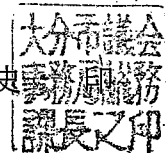 大分市議会
事務局総務
課長之印
史 印